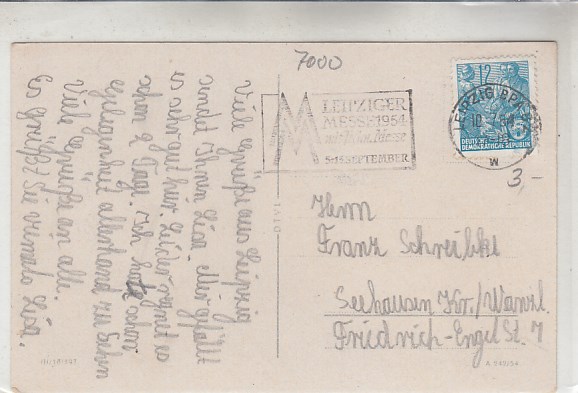 7000
LEIPZIGER
MESSE 1954
mit Techn. Messe
5-15 SEPTEMBER
12
DEUTSCHE
DEMOKRATISCHE REPUBLIK
LEIPZIG BPA
W
3,-
Viele Grüße aus Leipzig
sendet Ihnen Lisa. gefällt
es sehr gut hier. Leider regnet es
schon 2 Tage. Ich hatte schon
Gelegenheit allerhand zu sehen
Viele Grüße an alle
Es grüßt Sie nemals Lisa.
Herrn
Franz Schreibke
Seehausen Kr./Wanzl.
Friedrich-Engel St. 7
A 242/54